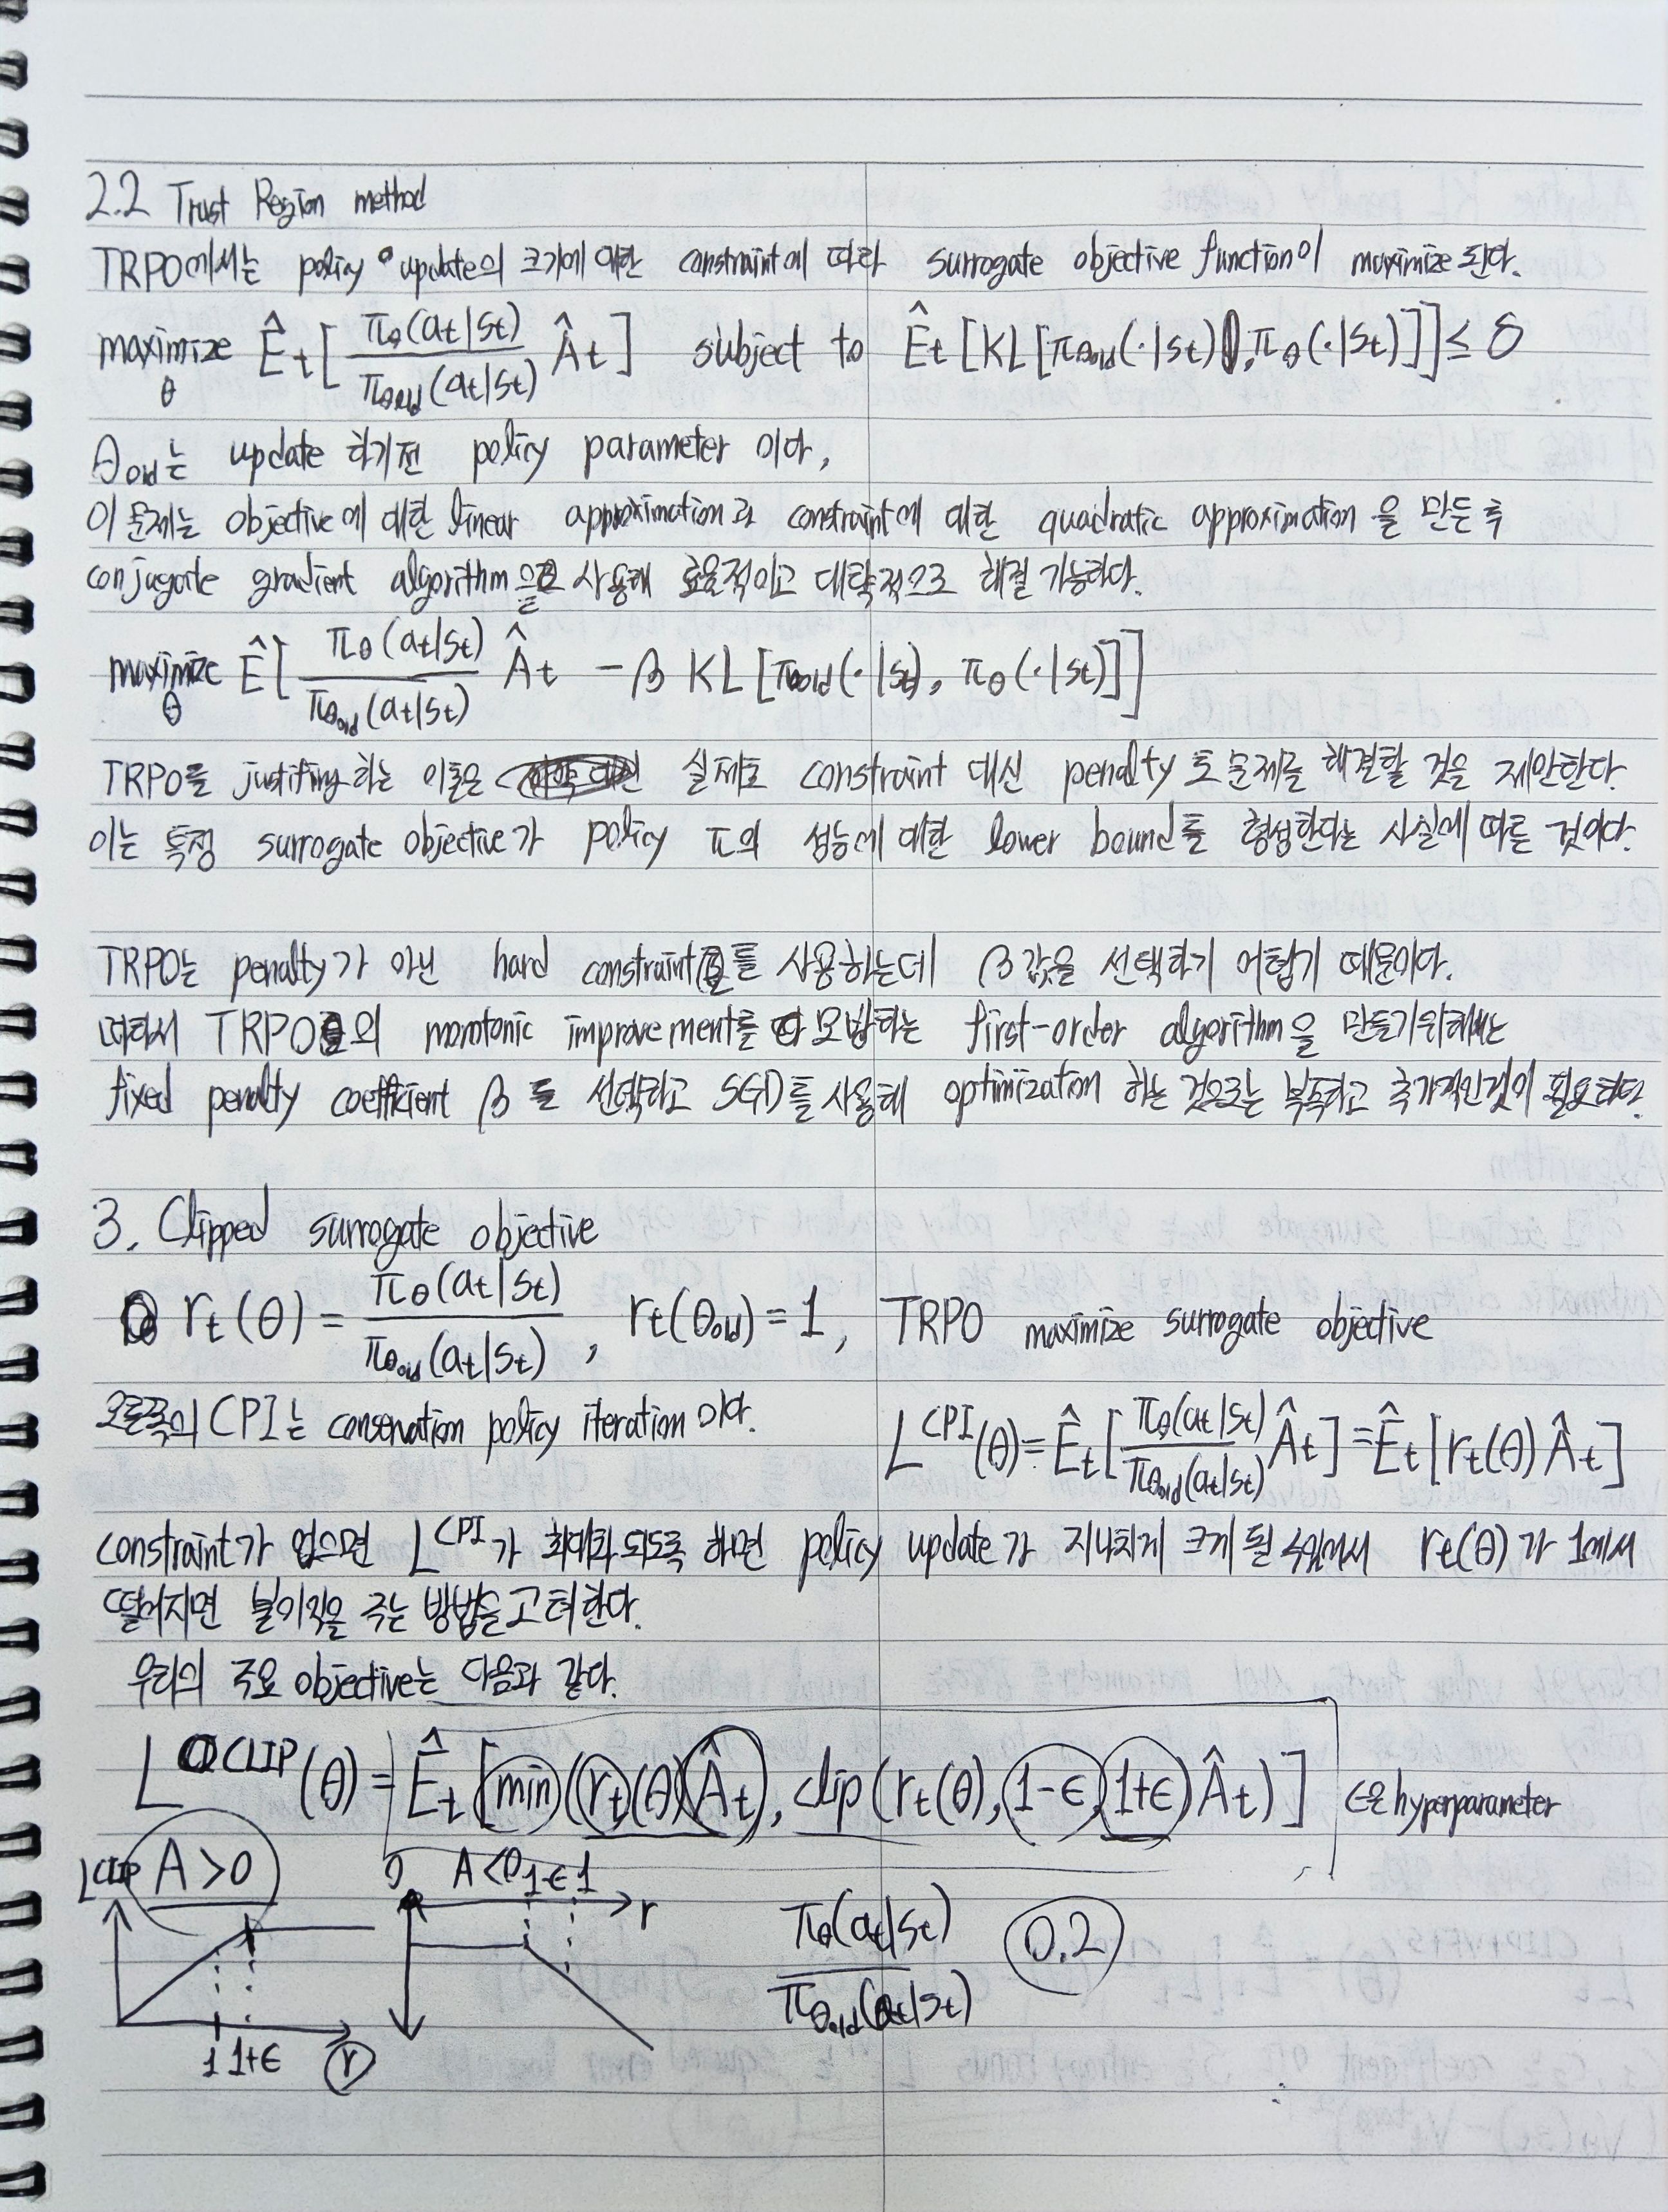 2.2 Trust Region method
TRPO에서는 policy update의 크기에 대한 constraint에 따라 surrogate objective function이 maximize 된다.
maximize_θ Ê_t[π_θ(a_t|s_t) / π_θold(a_t|s_t) Â_t] subject to Ê_t[KL[π_θold(·|s_t), π_θ(·|s_t)]] ≤ δ
θ_old는 update 하기전 policy parameter 이다,
이 문제는 objective에 대한 linear approximation과 constraint에 대한 quadratic approximation을 만든 후
conjugate gradient algorithm을 사용해 효율적이고 대략적으로 해결 가능하다.
maximize_θ Ê[π_θ(a_t|s_t) / π_θold(a_t|s_t) Â_t - β KL[π_old(·|s_t), π_θ(·|s_t)]]
TRPO를 justifing 하는 이론은 실제로 constraint 대신 penalty로 문제를 해결할 것을 제안한다.
이는 특정 surrogate objective가 policy π의 성능에 대한 lower bound를 형성한다는 사실에 따른 것이다.
TRPO는 penalty가 아닌 hard constraint를 사용하는데 β값을 선택하기 어렵기 때문이다.
따라서 TRPO의 monotonic improvement를 모방하는 first-order algorithm을 만들기위해서는
fixed penalty coefficient β를 선택하고 SGD를 사용해 optimization 하는 것으로는 부족하고 추가적인것이 필요하다.
3. Clipped surrogate objective
r_t(θ) = π_θ(a_t|s_t) / π_θold(a_t|s_t), r_t(θ_old) = 1, TRPO maximize surrogate objective
오른쪽의 CPI는 conservation policy iteration 이다.
L^CPI(θ) = Ê_t[π_θ(a_t|s_t) / π_θold(a_t|s_t) Â_t] = Ê_t[r_t(θ) Â_t]
constraint가 없으면 L^CPI가 최대화 되도록 하면 policy update가 지나치게 크게 될 수있어서 r_t(θ)가 1에서
떨어지면 불이익을 주는 방법을 고려한다.
우리의 주요 objective는 다음과 같다.
L^CLIP(θ) = Ê_t[min(r_t(θ)Â_t, clip(r_t(θ), 1-ϵ, 1+ϵ)Â_t)] ϵ은 hyperparameter
L^CLIP A>0
0 A<0 1-ϵ 1 r
1 1+ϵ r
π_θ(a_t|s_t) / π_θold(a_t|s_t) 0.2